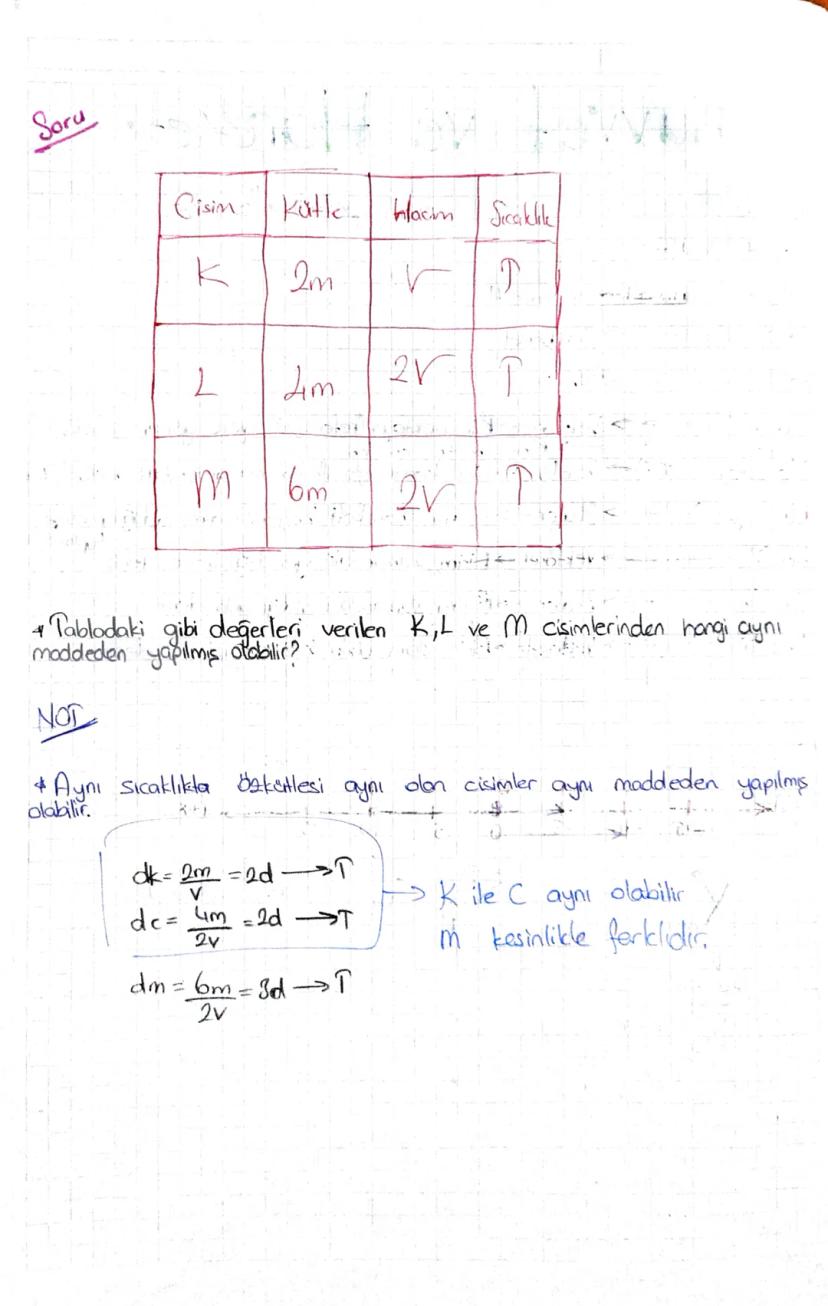 Soru
Cisim Kütle Hacim Sıcaklık
K 2m V T
L 4m 2V T
M 6m 2V T
* Tablodaki gibi değerleri verilen K, L ve M cisimlerinden hangi aynı
maddeden yapılmış olabilir?
NOT
* Aynı sıcaklıkta özkütlesi aynı olan cisimler aynı maddeden yapılmış
olabilir.
dk = 2m/v = 2d → T
dc = 4m/2v = 2d → T
→ K ile C aynı olabilir
m kesinlikle farklıdır.
dm = 6m/2v = 3d → T